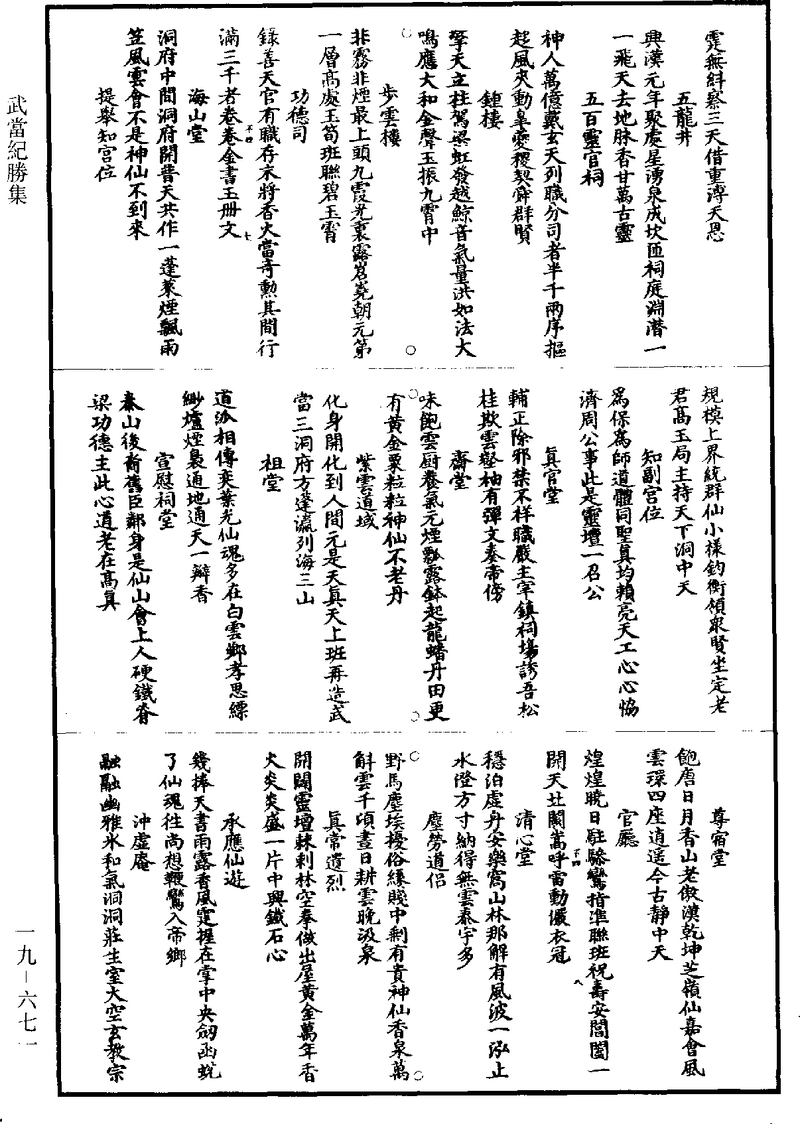 武當紀勝集
霆無斜察三天借重溥天恩
五龍井
興漢元年聚處星湧泉成坎匝祠庭淵潛一
一飛天去地脉香甘萬古靈
五百靈官祠
神人萬億戴玄天列職分司者半千兩序摳
趍風夾動臯夔稷契舜群賢
鍾樓
擎天立柱駕梁虹發越鯨音氣量洪如法大
鳴應大和金聲玉振九霄中
步雲樓
非霧非煙最上頭九霞光裏露岧嶤朝元第
一層髙處玉筍班聯碧玉霄
功德司
錄善天官有職存未將香火當竒勲其間行
滿三千者卷卷金書玉册文
海山堂
洞府中間洞府開普天共作一蓬萊煙飄雨
笠風雲會不是神仙不到來
提舉知宮位
規模上界統群仙小樣鈞衡領衆賢坐定老
君髙玉局主持天下洞中天
知副宮位
爲保爲師道體同聖真均賴亮天工心心恊
濟周公事此是靈壇一召公
真官堂
輔正除邪禁不祥職嚴主宰鎮祠場誇吾松
桂欺雲壑柚有彈文奏帝傍
齋堂
味飽雲厨養氣元煙瓢露鉢起龍蟠丹田更
有黃金粟粒粒神仙不老丹
紫雲道域
化身開化到人間元是天真天上班再造武
當三洞府方蓬瀛列海三山
祖堂
道派相傳奕葉光仙魂多在白雲鄉孝思縹
緲壚煙裊通地通天一瓣香
宣慰祠堂
秦山後裔舊臣鄰身是仙山會上人硬鐵脊
梁功德主此心道老在髙真
尊宿堂
飽唐日月香山老傲漢乾坤芝嶺仙嘉會風
雲琛四座逍遥今古静中天
官廳
煌煌曉日駐驂鸞揩準聯班祝壽安閶闔一
開天北闕嵩呼雷動儼衣冠
清心堂
穩泊虚舟安樂窩山林那解有風波一泓止
水澄方寸納得無雲泰宇多
塵勞道侣
野馬塵埃擾俗緣賤中剩有貴神仙香泉萬
斛雲千頃晝日耕雲晚汲泉
真常遺烈
開闢靈壇棘刺林空拳做出屋黃金萬年香
火炎炎盛一片中興鐵石心
承應仙遊
幾捧天書雨露香風霆裡在掌中央劒函蛻
了仙魂徃尚想鞭鸞入帝鄉
沖虚庵
融融幽雅氷和氣洞洞莊生室大空玄教宗
一九－六七一